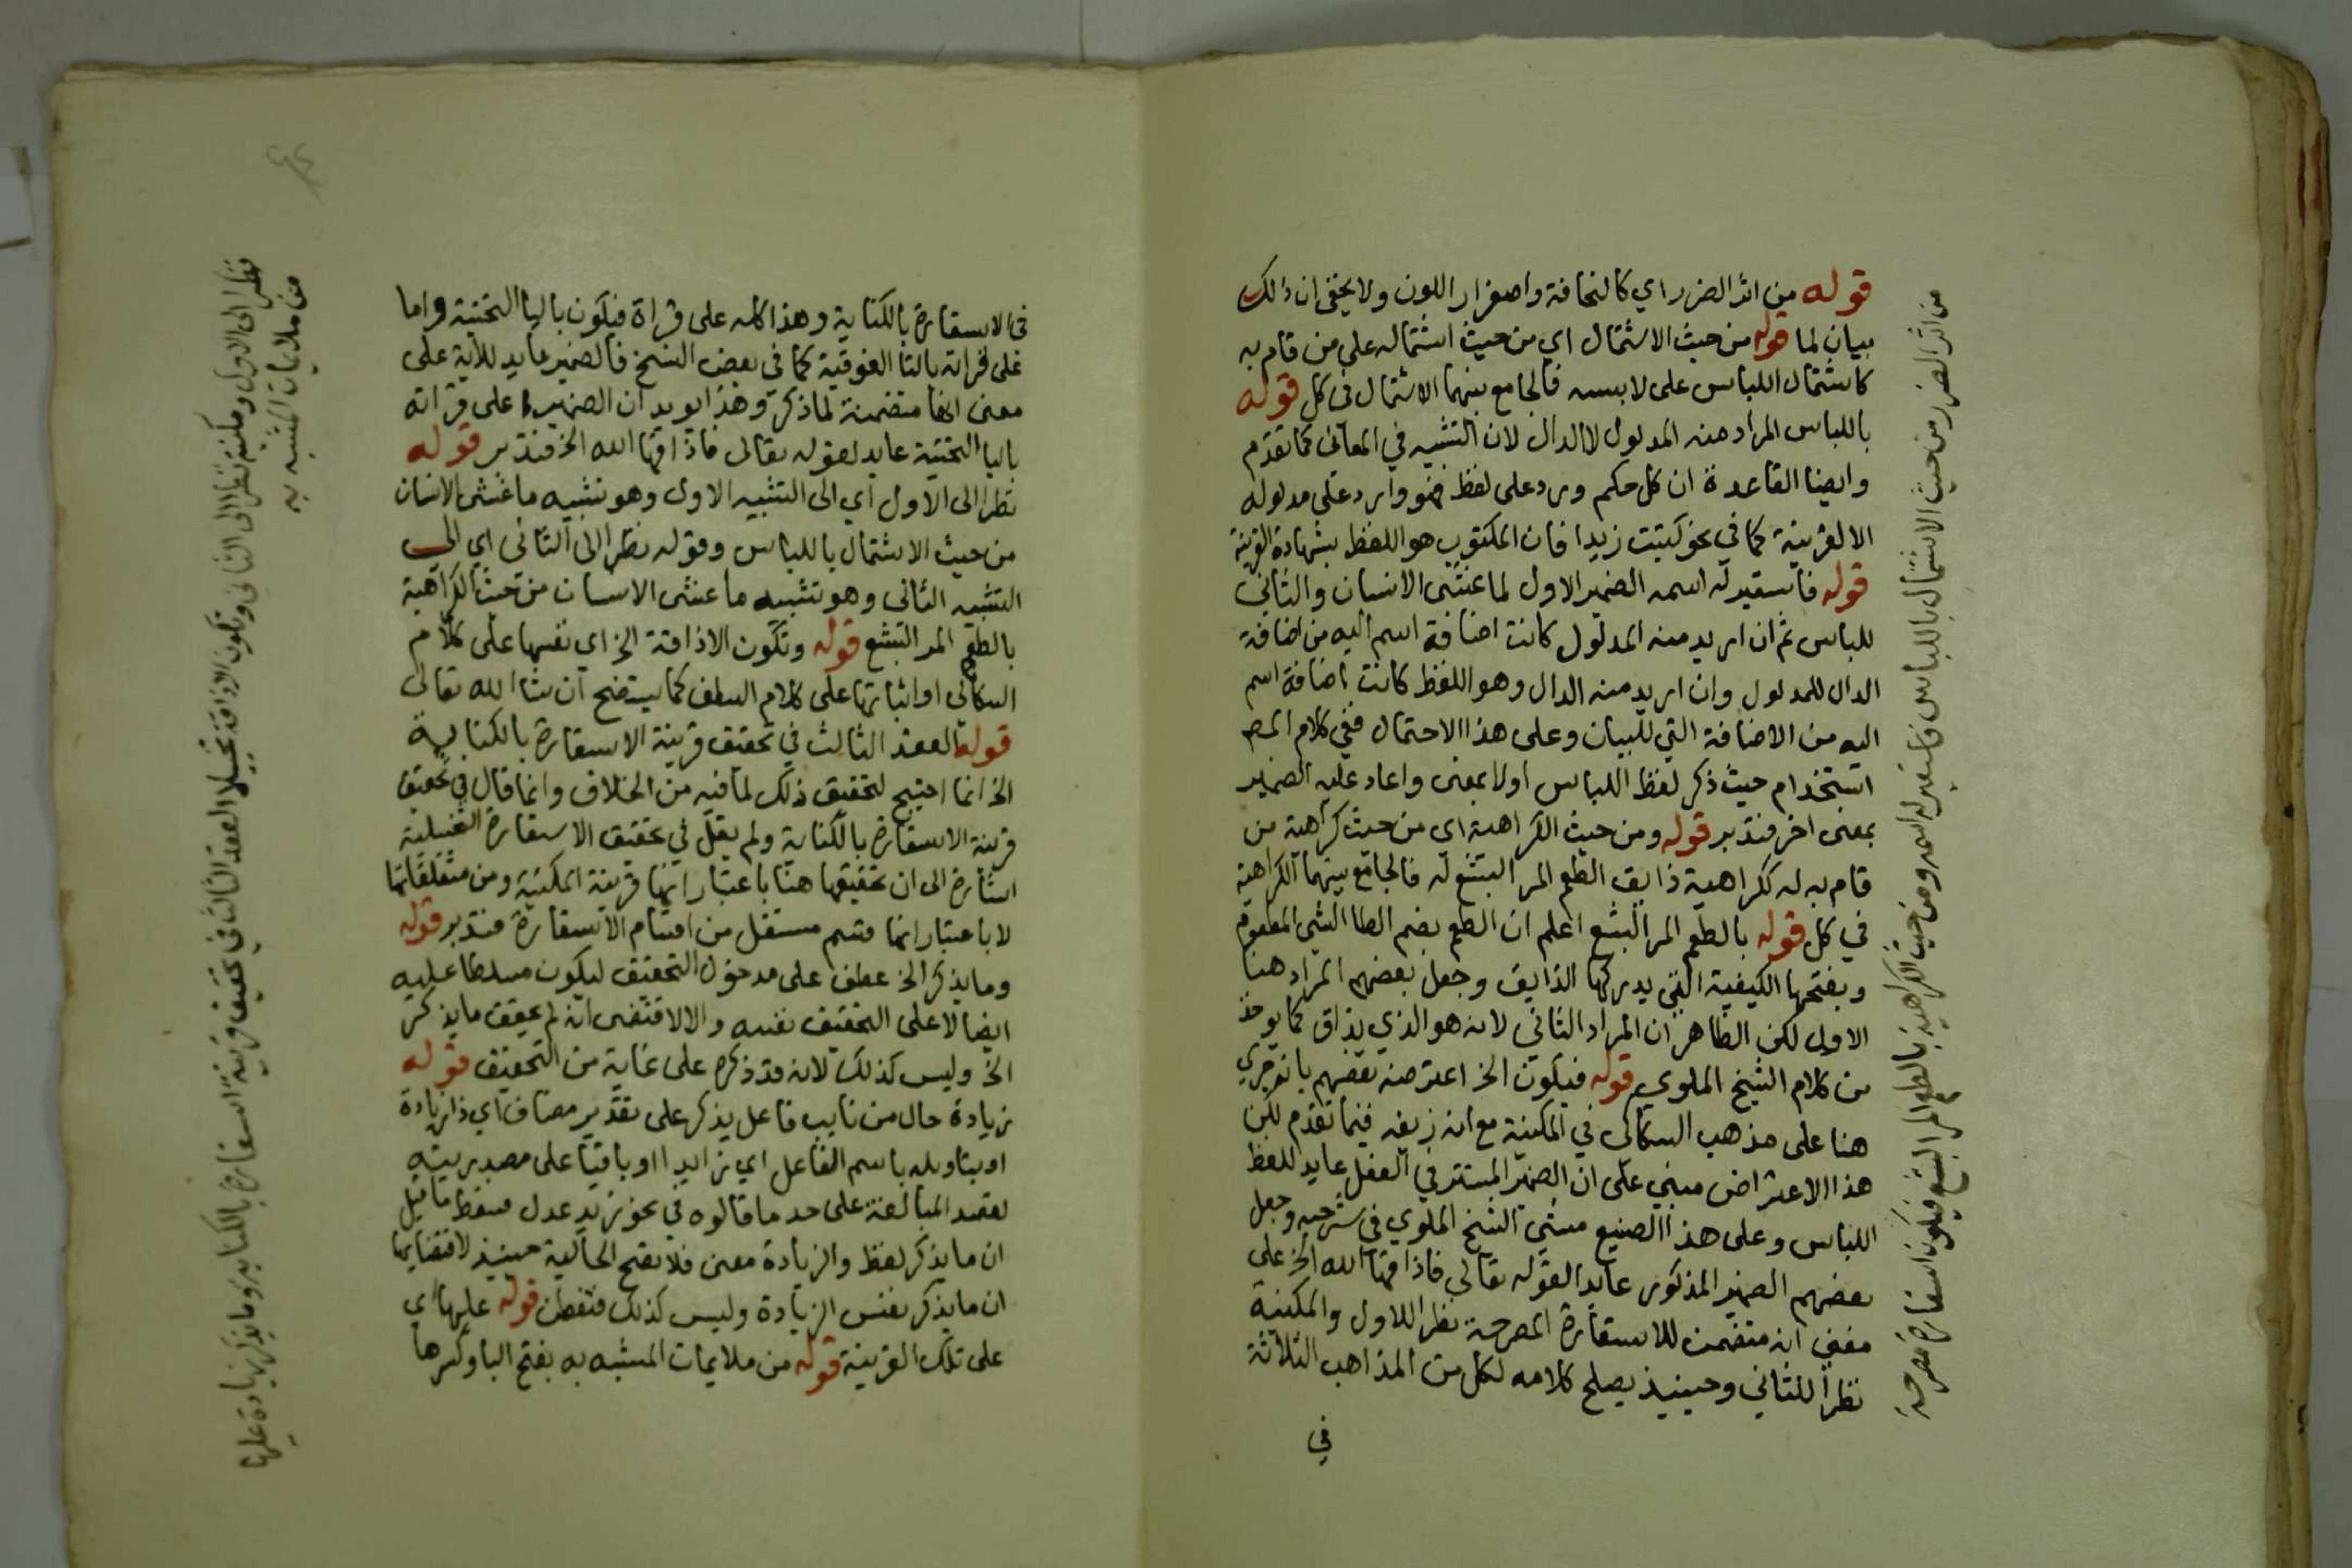 قوله من اثر الضرر اي كالنحافة واصفرار اللون ولا يخفى ان ذالك
بيان لما قوله من حيث الاشتمال اي من حيث اشتماله على من قام به
كاشتمال اللباس على لابسه فالجامع بينهما الاشتمال في كل قوله
باللباس المراد منه المدلول لا الدال لان التشبيه في المعاني كما تقدم
وايضا القاعدة ان كل حكم ورد على لفظ فهو وارد على مدلوله
الا لقرينة كما في نحو كتبت زيدا فان المكتوب هو اللفظ بشهادة القرينة
قوله فاستعير له اسمه الضمير الاول لما غشى الانسان والثاني
للباس ثم ان اريد منه المدلول كانت اضافة اسم اليه من اضافة
الدال للمدلول وان اريد منه الدال وهو اللفظ كانت اضافة اسم
اليه من الاضافة التي للبيان وعلى هذا الاحتمال ففي كلام المص
استخدام حيث ذكر لفظ اللباس اولا بمعنى واعاد عليه الضمير
بمعنى اخر فتدبر قوله ومن حيث الكراهية اي من حيث كراهية من
قام به له ككراهية ذايق الطعم المر البشع له فالجامع بينهما الكراهية
في كل قوله بالطعم المر البشع اعلم ان الطعم بضم الطا الشي المطعوم
وبفتحها الكيفية التي يدركها الذايق وجعل بعضهم المراد هنا
الاول لكن الظاهر ان المراد الثاني لانه هو الذي يذاق كما يوخذ
من كلام الشيخ الملوي قوله فيكون الخ اعترضه بعضهم بانه جري
هنا على مذهب السكاكي في المكنية مع انه زيفه فيما تقدم لكن
هذا الاعتراض مبني على ان الضمير المستتر في الفعل عايد للفظ
اللباس وعلى هذا الصنيع مشى الشيخ الملوي في شرحه وجعل
بعضهم الضمير المذكور عايدا لقوله تعالى فاذاقها الله الخ على
معنى انه متضمن للاستعارة المصرحة نظرا للاول والمكنية
نظرا للثاني وحينيذ يصلح كلامه لكل من المذاهب الثلاثة
في
من اثر الضرر من حيث الاشتمال باللباس فاستعير له اسمه ومن حيث الكراهية بالطعم المر البشع فيكون استعارة مصرحة
في الاستعارة بالكناية وهذا كله على قراة فيكون باليا التحتية واما
على قراته بالتا الفوقية كما في بعض النسخ فالضمير عايد للاية على
معنى انها متضمنة لما ذكر وهذا يويد ان الضمير على قراته
باليا التحتية عايد لقوله تعالى فاذاقها الله الخ فتدبر قوله
نظرا الى الاول اي الى التشبيه الاول وهو تشبيه ما غشى الانسان
من حيث الاشتمال باللباس وقوله نظرا الى الثاني اي الى
التشبيه الثاني وهو تشبيه ما غشى الانسان من حيث الكراهية
بالطعم المر البشع قوله وتكون الاذاقة الخ اي نفسها على كلام
السكاكي او اثباتها على كلام السلف كما يتضح ان شا الله تعالى
قوله العقد الثالث في تحقيق قرينة الاستعارة بالكناية
الخ انما احتيج لتحقيق ذلك لما فيه من الخلاف وانما قال في تحقيق
قرينة الاستعارة بالكناية ولم يقل في تحقيق الاستعارة التخييلية
اشارة الى ان تحقيقها هنا باعتبار انها قرينة المكنية ومن متعلقاتها
لا باعتبار انها قسم مستقل من اقسام الاستعارة فتدبر قوله
وما يذكر الخ عطف على مدخول التحقيق ليكون مسلطا عليه
ايضا لا على التحقيق نفسه والا لاقتضى انه لم يحقق ما يذكر
الخ وليس كذلك لانه قد ذكره على غاية من التحقيق قوله
زيادة حال من نايب فاعل يذكر على تقدير مضاف اي ذا زيادة
او بتاويله باسم الفاعل اي زايدا او باقيا على مصدريته
لقصد المبالغة على حد ما قالوه في نحو زيد عدل فسقط ما قيل
ان ما يذكر لفظ والزيادة معنى فلا تصح الحالية حينيذ لاقتضايها
ان ما يذكر نفس الزيادة وليس كذلك فتفطن قوله عليها اي
على تلك القرينة قوله من ملايمات المشبه به بفتح البا وكسرها
نظرا الى الاول ومكنية نظرا الى الثاني وتكون الاذاقة تخييلا العقد الثالث في تحقيق قرينة الاستعارة بالكناية وما يذكر زيادة عليها
من ملايمات المشبه به